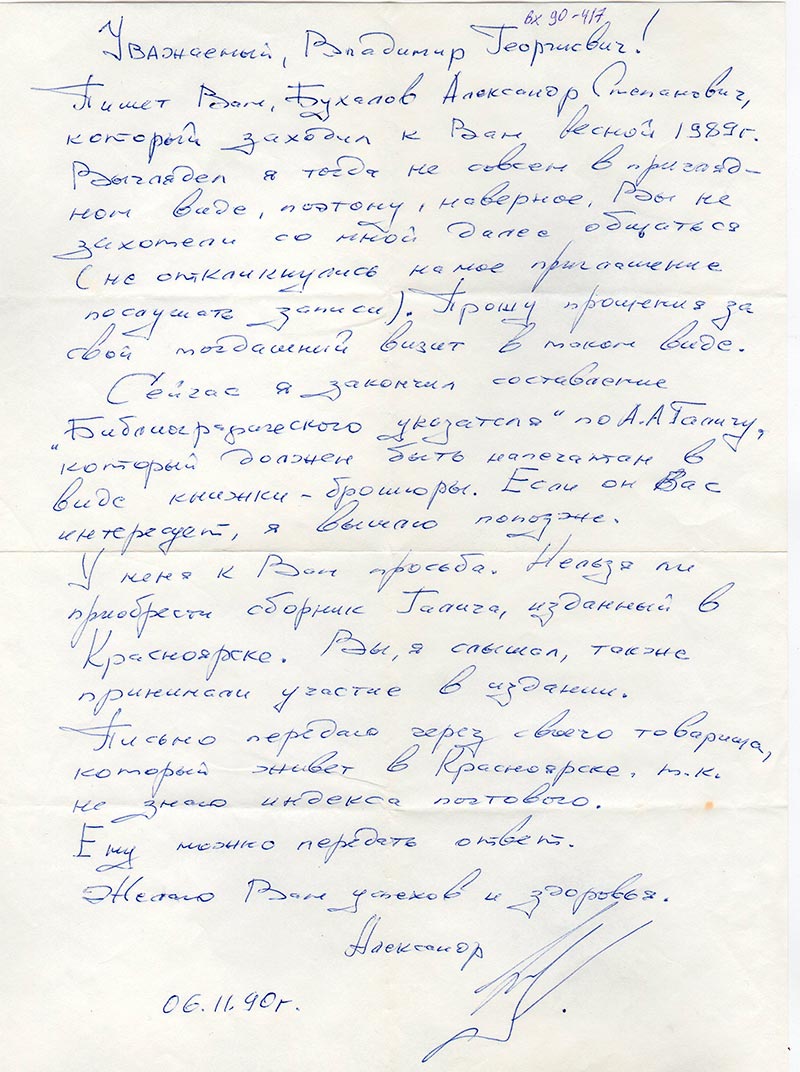 вх 90-417
Уважаемый, Владимир Георгиевич!
Пишет Вам, Бухалов Александр Степанович,
который заходил к Вам весной 1989г.
Выглядел я тогда не совсем в пригляд-
ном виде, поэтому, наверное, Вы не
захотели со мной далее общаться
(не откликнулись на мое приглашение
послушать записи). Прошу прощения за
свой тогдашний визит в таком виде.
Сейчас я закончил составление
"Библиографического указателя" по А.А Галичу,
который должен быть напечатан в
виде книжки-брошюры. Если он Вас
интересует, я вышлю попозже.
У меня к Вам просьба. Нельзя ли
приобрести сборник Галича, изданный в
Красноярске. Вы, я слышал, также
принимали участие в издании.
Письмо передаю через своего товарища,
который живет в Красноярске, т.к.
не знаю индекса почтового.
Ему можно передать ответ.
Желаю Вам успехов и здоровья.
Александр
06.11.90г.